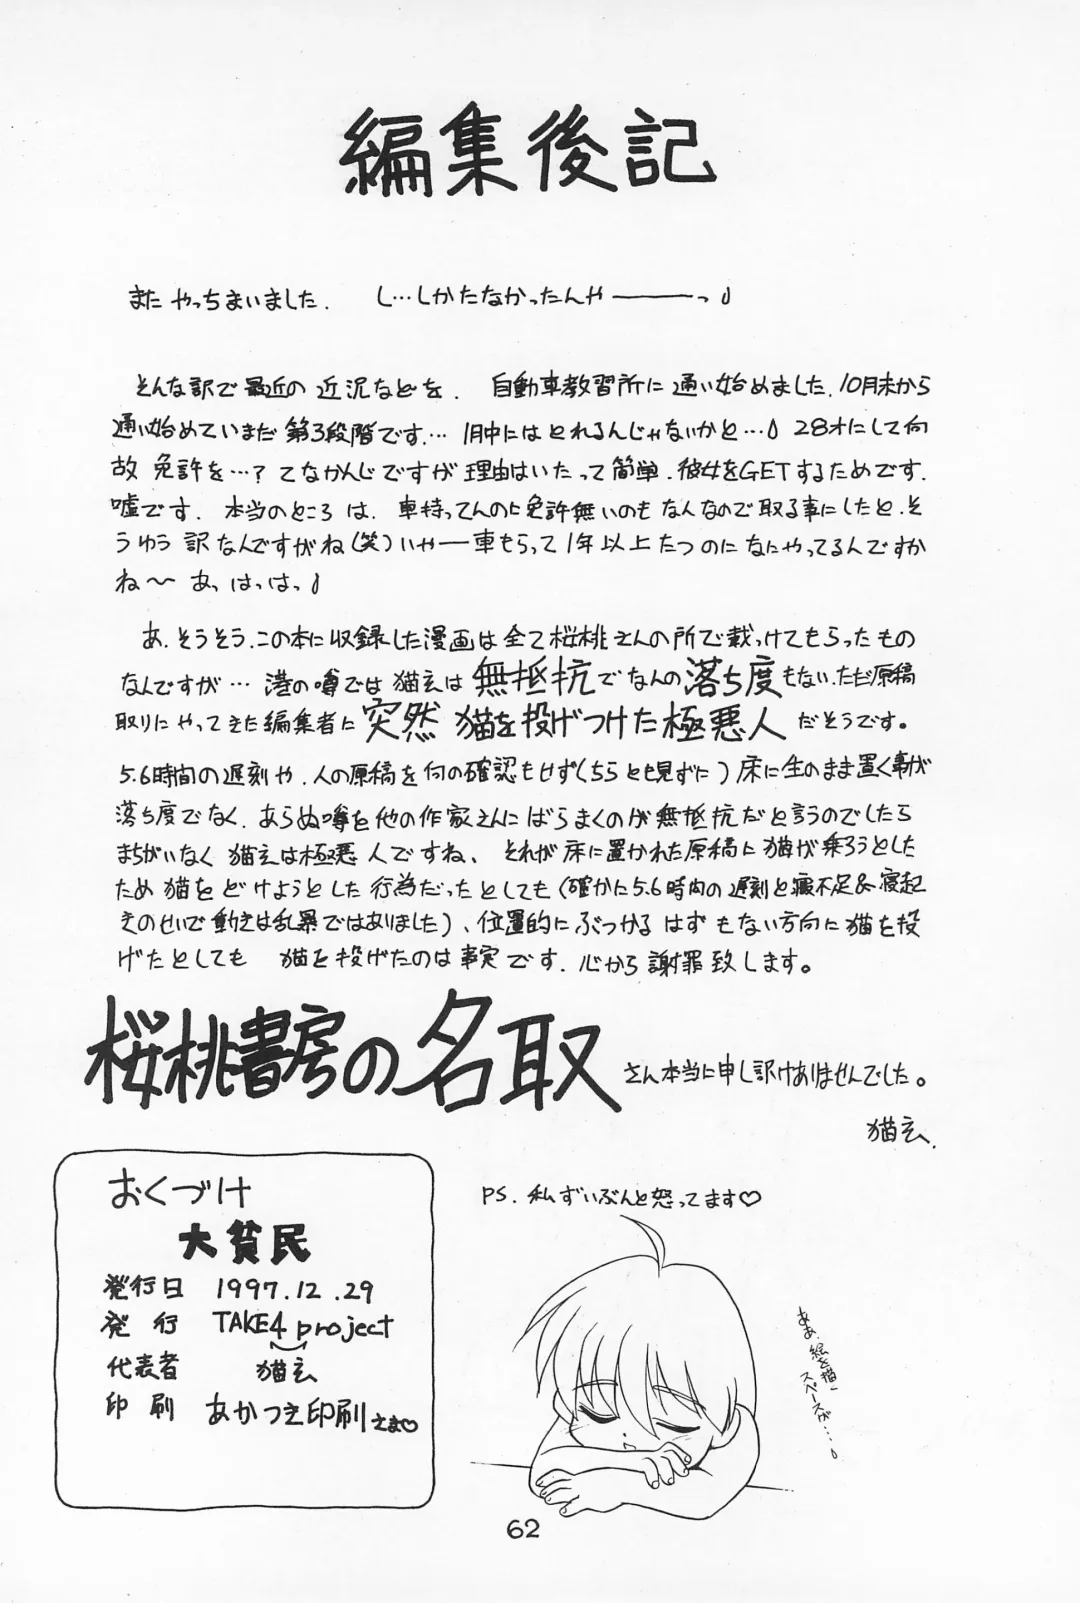 編集後記
また やっちまいました. し…しかたなかったんや―――っ
そんな訳で最近の近況などを. 自動車教習所に通い始めました.10月末から
通い始めていまだ第3段階です…. 1月中にはとれるんじゃないかと… 28才にして何
故 免許を…? てなかんじですが理由はいたって簡単.彼女をGETするためです.
嘘です. 本当のところは、車持ってんのに免許無いのもなんなので取る事にしたと.そ
うゆう訳なんですがね(笑)いやー車もらって1年以上たつのになにやってるんですか
ね〜 あっはっはっ
あ.そうそう.この本に収録した漫画は全て桜桃さんの所で載っけてもらったもの
なんですが… 港の噂では猫玄は無抵抗でなんの落ち度もない.ただ原稿
取りにやってきた編集者に突然 猫を投げつけた極悪人だそうです。
5.6時間の遅刻や.人の原稿を何の確認もせず(ちらとも見ずに)床に生のまま置く事が
落ち度でなく.あらぬ噂を他の作家さんにばらまくのが無抵抗だと言うのでしたら
まちがいなく猫玄は極悪人ですね、それが床に置かれた原稿に猫が乗ろうとした
ため猫をどけようとした行為だったとしても(確かに5.6時間の遅刻と寝不足&寝起
きのせいで動きは乱暴ではありました)、位置的にぶつかるはずもない方向に猫を投
げたとしても 猫を投げたのは事実です.心から謝罪致します。
桜桃書房の名取さん本当に申し訳けありませんでした。
猫玄.
PS.私ずいぶんと怒ってます♡
おくづけ
大貧民
発行日 1997.12.29
発行 TAKE4 project
代表者 猫玄
印刷 あかつき印刷さま♡
ああ.絵を描く
スペースが…
62